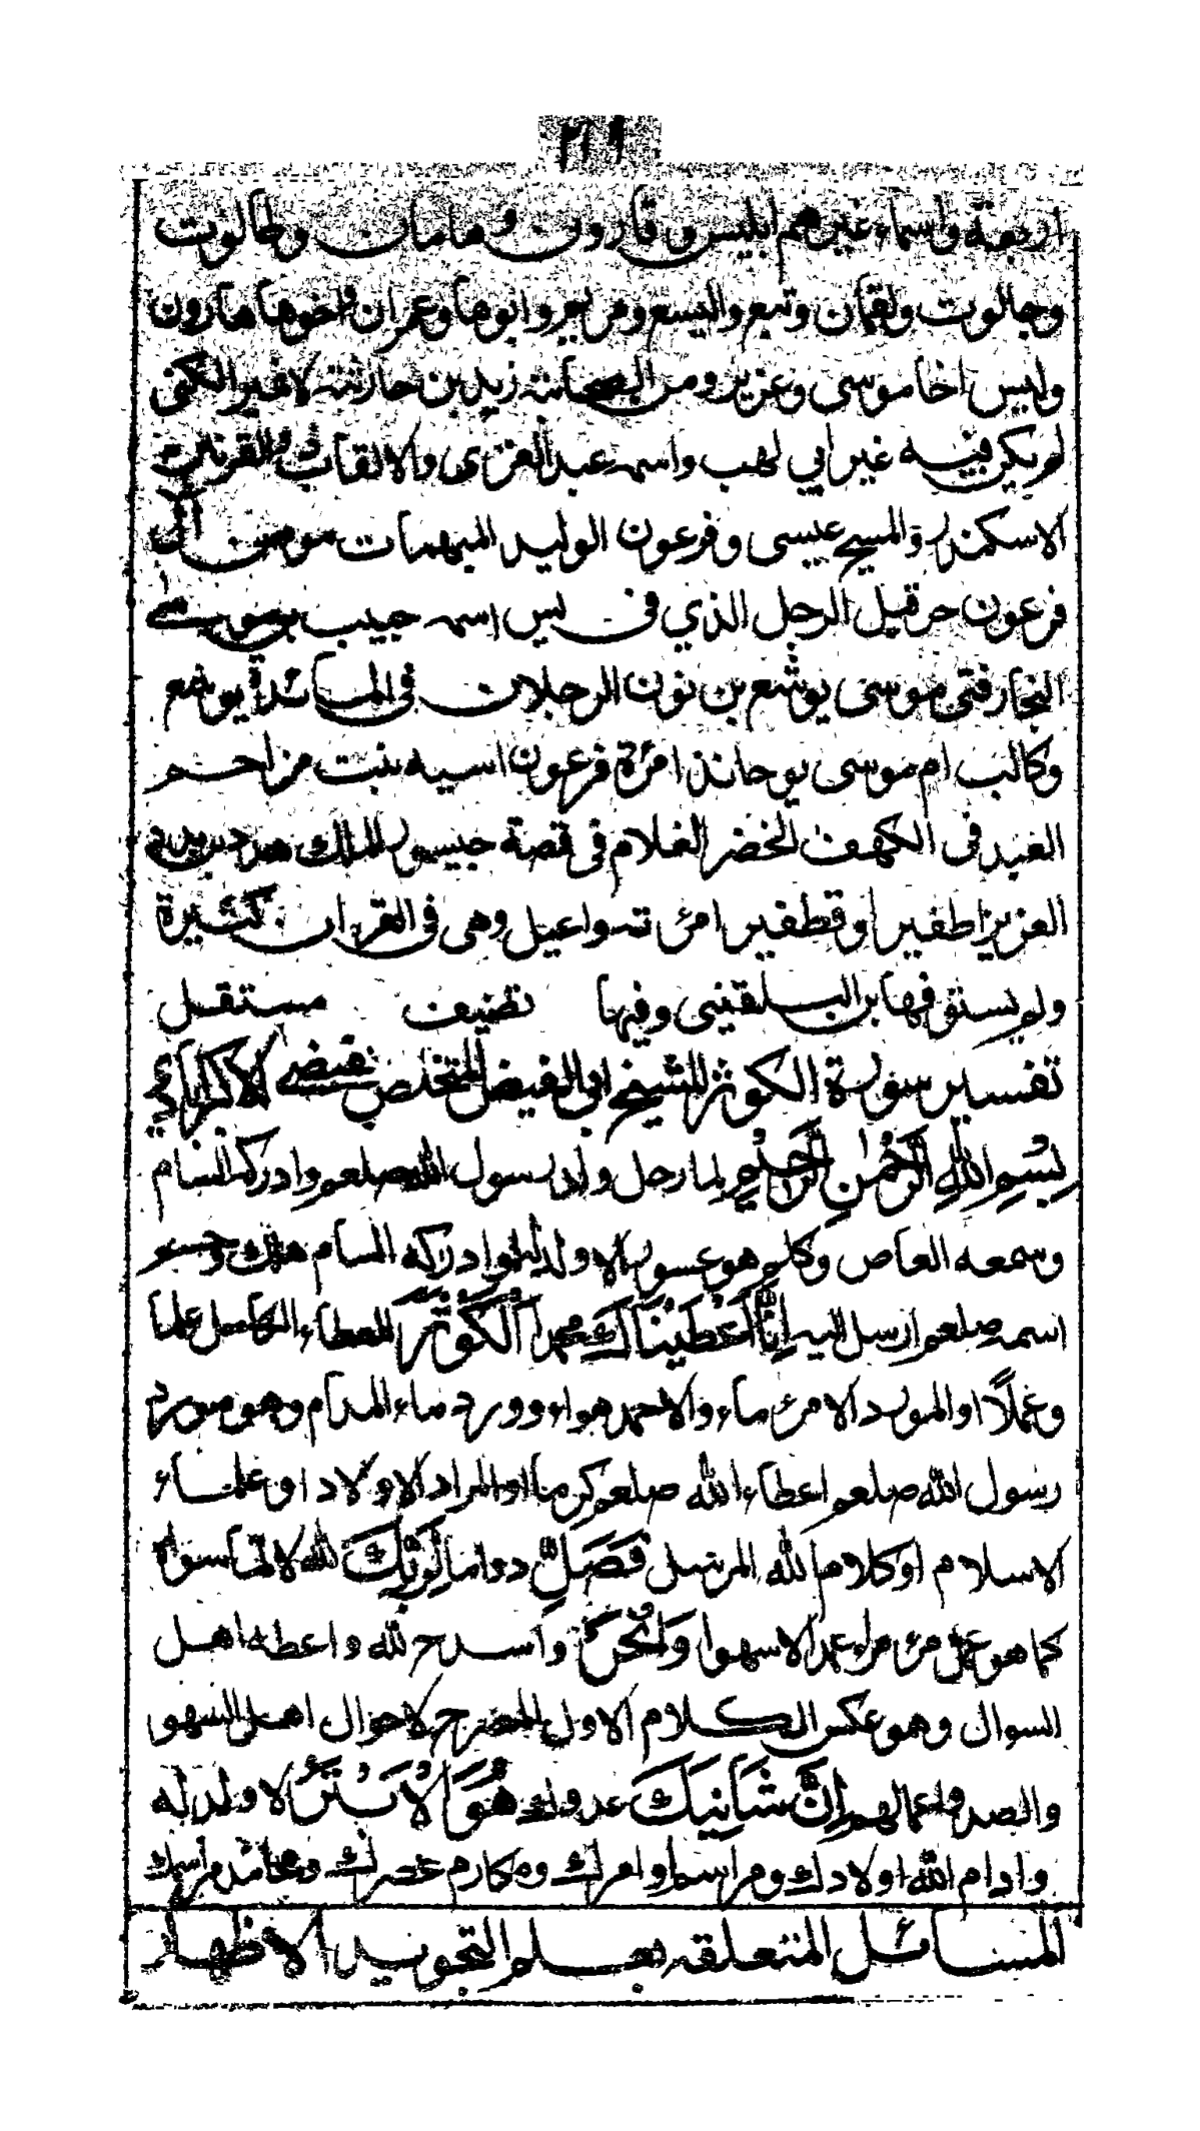 اربعة واسماء غيرهم ابليس وقارون وهامان وطالوت
وجالوت ولقمان وتبع واليسع ومريم وابوها وعمران واخوها هارون
وليس اخا موسى وعزير ومن الصحابة زيد بن حارثة لا غير الكنى
لم يكن فيه غير ابي لهب واسمه عبد العزى والالقاب ذو القرنين
الاسكندر والمسيح عيسى وفرعون الوليد المبهمات مومن آل
فرعون حزقيل الرجل الذي في يس اسمه حبيب بن موسى
النجار فتى موسى يوشع بن نون الرجلان في المائدة يوشع
وكالب ام موسى يوحانذ امرٔة فرعون اسيه بنت مزاحم
العبد في الكهف الخضر الغلام في قصة حيسور الملك هدد
العزيز اطفير او قطفير امرٔ ته واعيل وهى فى القران كثيرة
ولم يستوفها بن البلقينى وفيها تصنيف مستقل
تفسير سورة الكوثر للشيخ ابى الفيض المتخلص بفيضى الاكبرابادي
بِسْمِ اللهِ الرَّحْمٰنِ الرَّحِيْمِ لما رحل ولد رسول الله صلعم وادركه السام
وسمعه العاص وكلم هو عسور لا ولد له لموا دركه السام هلك وحسم
اسمه صلعم ارسل اليه اِنَّا اَعْطَيْنَاكَ محمد الْكَوْثَرَ العطاء الكامل علما
وعملاً او المورد الامرء ماء والاحمد هواء وورد ماء المدام وهو مورد
رسول الله صلعم اعطاء الله صلعم كرما او المراد الاولاد او علماء
الاسلام او كلام الله المرسل فَصَلِّ دواما لِرَبِّكَ لله لا لما سواه
كما هو عمل مرء مراء عمدا لا سهوا وَانْحَرْ واسدح لله واعطه اهل
السوال وهو عكس الكلام الاول المصرح لاحوال اهل السهو
والصد واعمالهم اِنَّ شَانِئَكَ عدوك هُوَ الْاَبْتَرُ لا ولد له
وادام الله اولادك ومراسم اوامرك ومكارم عصرك ومحامد مراسمك
المسائل المتعلقه بعلم التجويد الاظهار